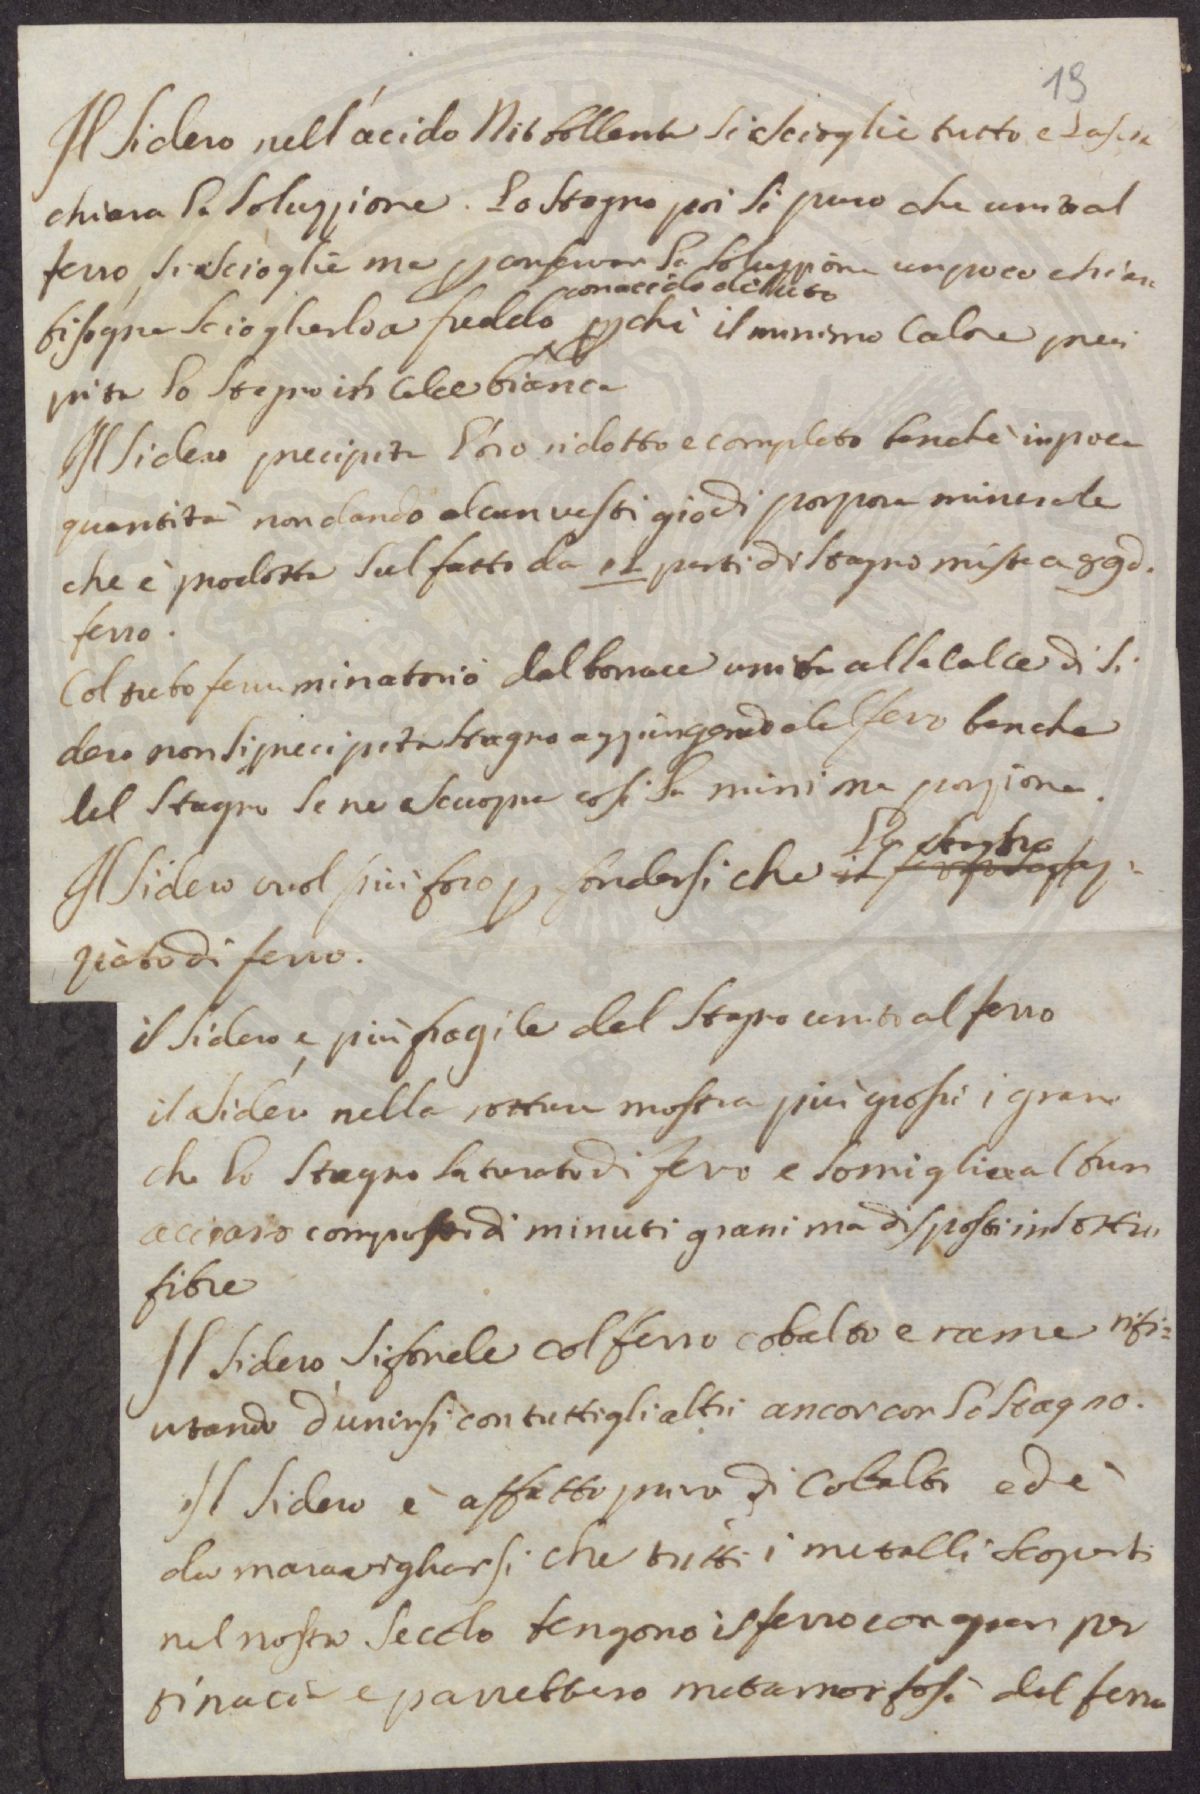 19
Il Sidero nell'acido Nit bollente si scioglie tutto e lascia
chiara la soluzzione. Lo Stagno poi si puro che unito al
ferro si scioglie ma p conservar la soluzzione un poco chiara
con acido diluto
bisogna scioglierlo a freddo pchè il minimo calore preci
pita lo Stagno in calce bianca
Il Sidero precipita l'oro ridotto e completo benchè in poca
quantità non dando alcun vestigio di porpora minerale
che è prodotta sul fatto da 01 parti di Stagno mista a 99 d.
ferro.
Col tubo ferruminatorio dal borrace unita alla calce di Si
dero non si precipita Stagno aggiungendole ferro benche
del Stagno se ne scuopra cosi la minima porzione.
Lo stagno
Il Sidero vuol più foco p fondersi che il
ziato di ferro.
il Sidero è più fragile del Stagno unito al ferro
il Sidero nella rottura mostra più grossi i grani
che lo Stagno saturato di ferro e somiglia al
acciaro composto di minuti grani ma disposti in
fibre
Il Sidero si fonde col ferro cobalto e rame rifi=
utando d'unirsi con tutti gli altri ancor con lo Stagno.
Il Sidero è affatto puro di Cobalto ed è
da maravigliarsi che tutti i metalli scoperti
nel nostro Secolo tengono il ferro con gran per
tinacia e parrebbero metamorfosi del ferro